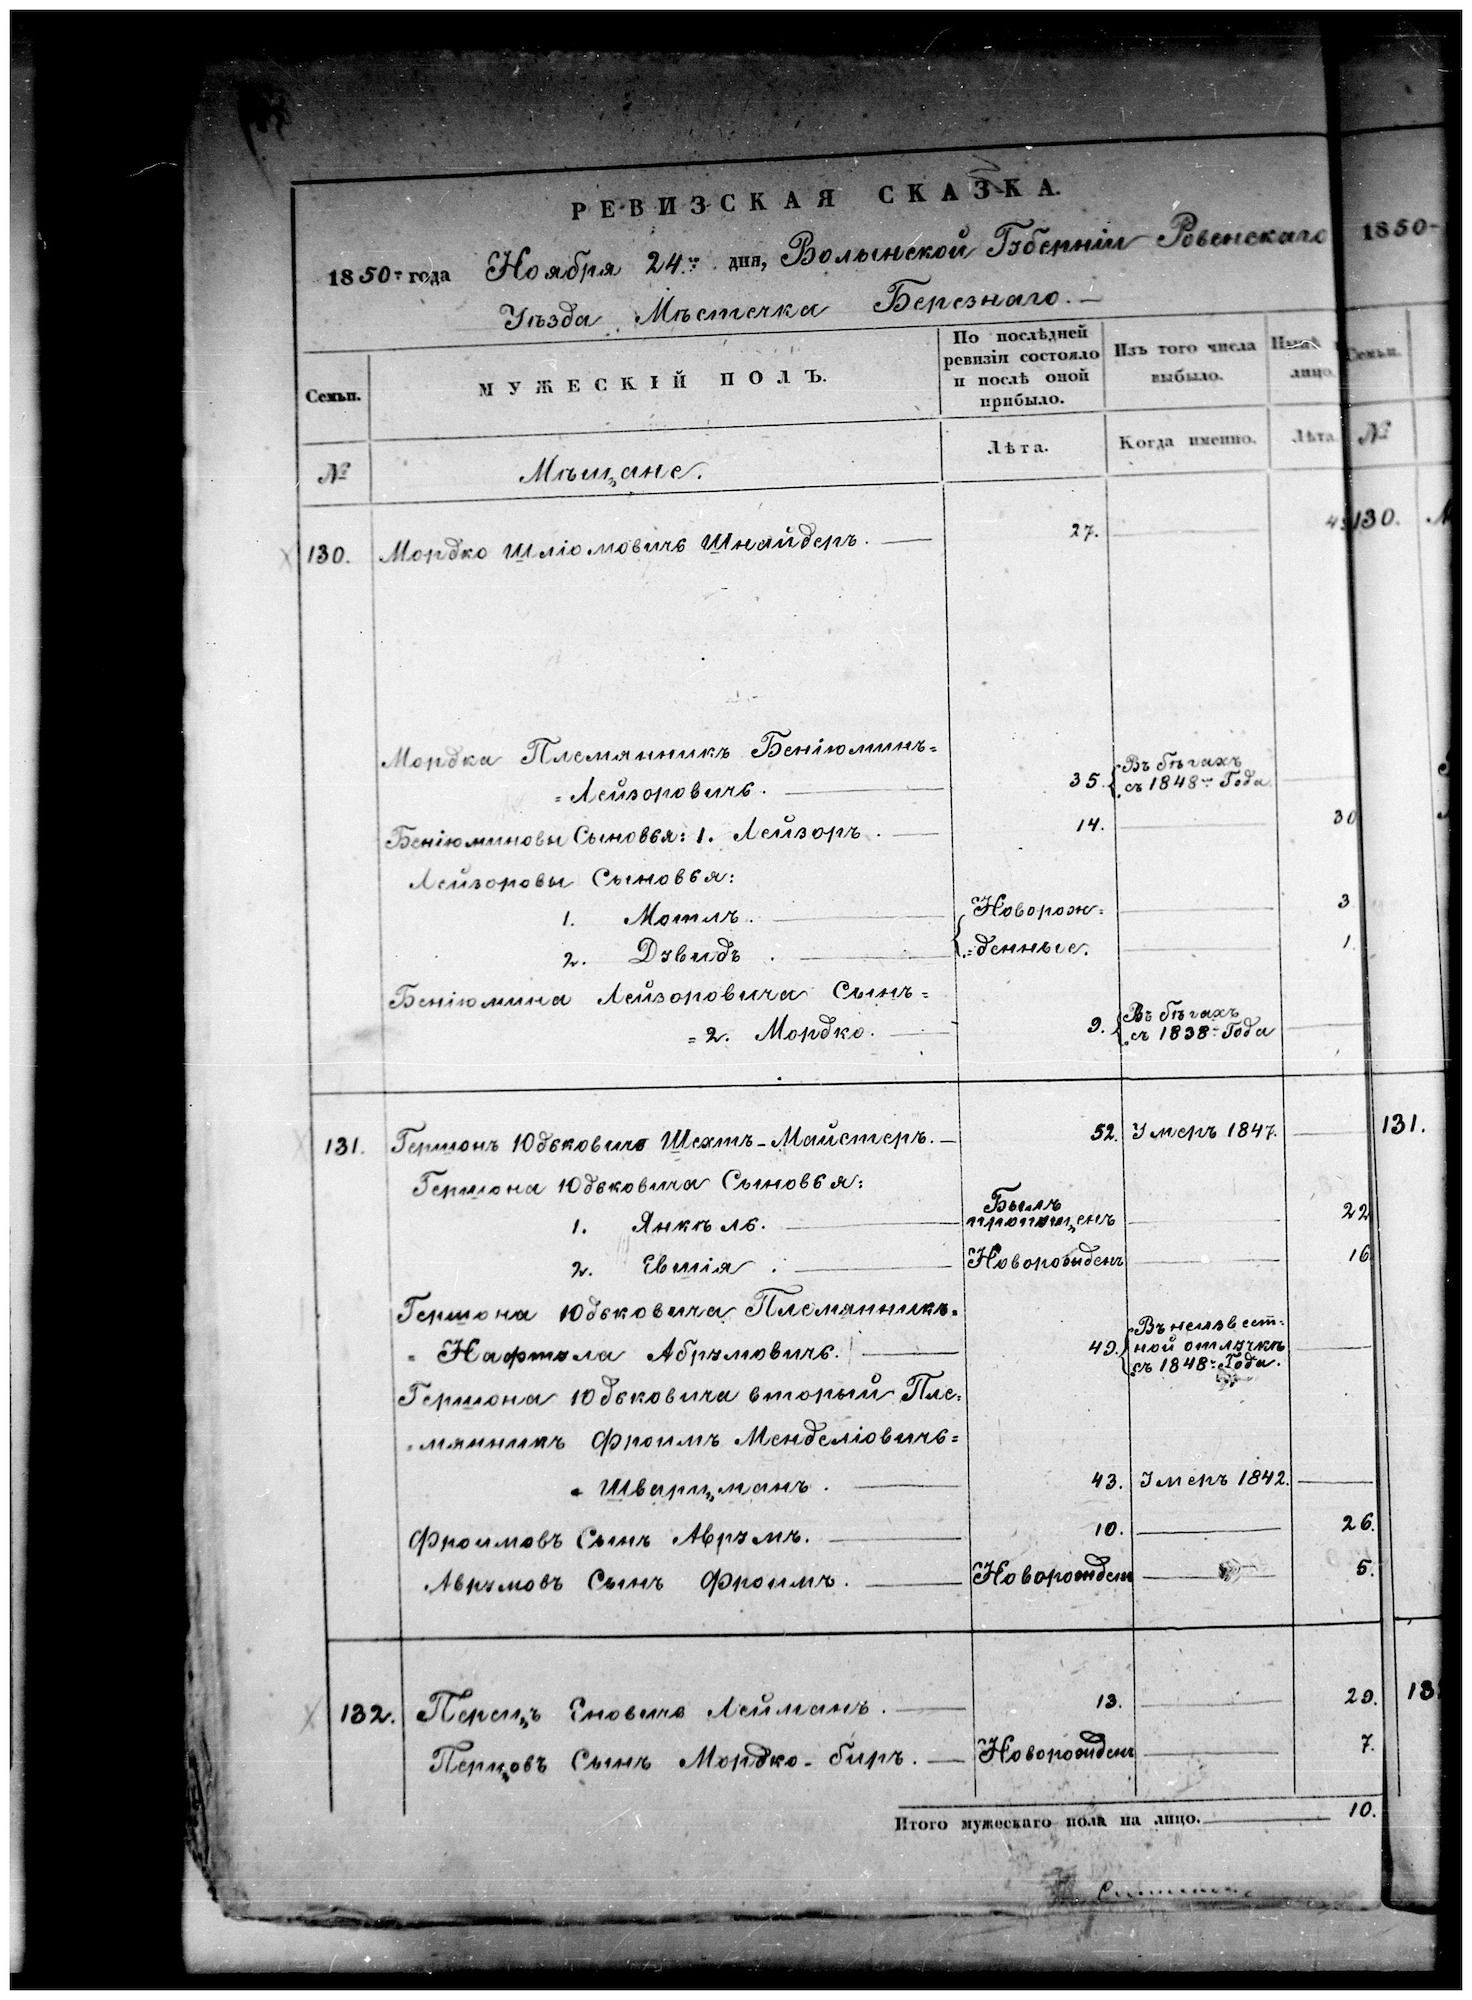 РЕВИЗСКАЯ СКАЗКА.
1850 г года Ноября 24го дня, Волынской Губерніи Ровенскаго
Уѣзда Мѣстечка Березнаго.
Семьи.
МУЖЕСКІЙ ПОЛЪ.
По послѣдней ревизіи состояло и послѣ оной прибыло.
Изъ того числа выбыло.
лицо.
№
Мѣщане.
Лѣта.
Когда именно.
Лѣта.
130. Мордко Шліомовичь Шнайдеръ. 27.
Мордка Племянникъ Беніюминъ=
=Лейзоровичь. 35. Въ бѣгахъ съ 1848го Года
Беніюминовы Сыновья: 1. Лейзоръ. 14. 30
Лейзоровы Сыновья:
1. Мотль. Новорож= 3
2. Дувидъ. =денные. 1.
Беніюмина Лейзоровича Сынъ=
=2. Мордко. 9. Въ бѣгахъ съ 1838го Года
131. Гершонъ Юдьковичь Шехтъ-Майстеръ. 52. Умеръ 1847.
Гершона Юдьковича Сыновья:
1. Янкель. Былъ пропущенъ 22
2. Евшія. Новорожденъ 16
Гершона Юдьковича Племянникъ=
=Нафтула Абрумовичь. 49. Въ неизвест=ной отлучкѣ съ 1848го Года.
Гершона Юдьковича вторый Пле=
=мянникъ Фроимъ Менделіовичь=
=Шварцманъ. 43. Умеръ 1842.
Фроимовъ Сынъ Аврумъ. 10. 26.
Аврумовъ Сынъ Фроимъ. Новорожден 5.
132. Перецъ Еновичь Лейманъ. 13. 29.
Перцовъ Сынъ Мордко-биръ. Новорожденъ 7.
Итого мужескаго пола на лицо. 10.
1850
Семьи.
№
130.
131.